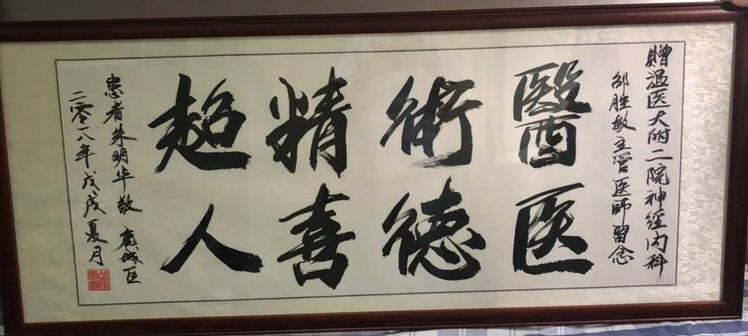 赠温医大附二院神经内科
邵胜敏主管医师留念
醫術精超
医德喜人
患者朱明华敬 鹿城区
二零一八年戊戌夏月